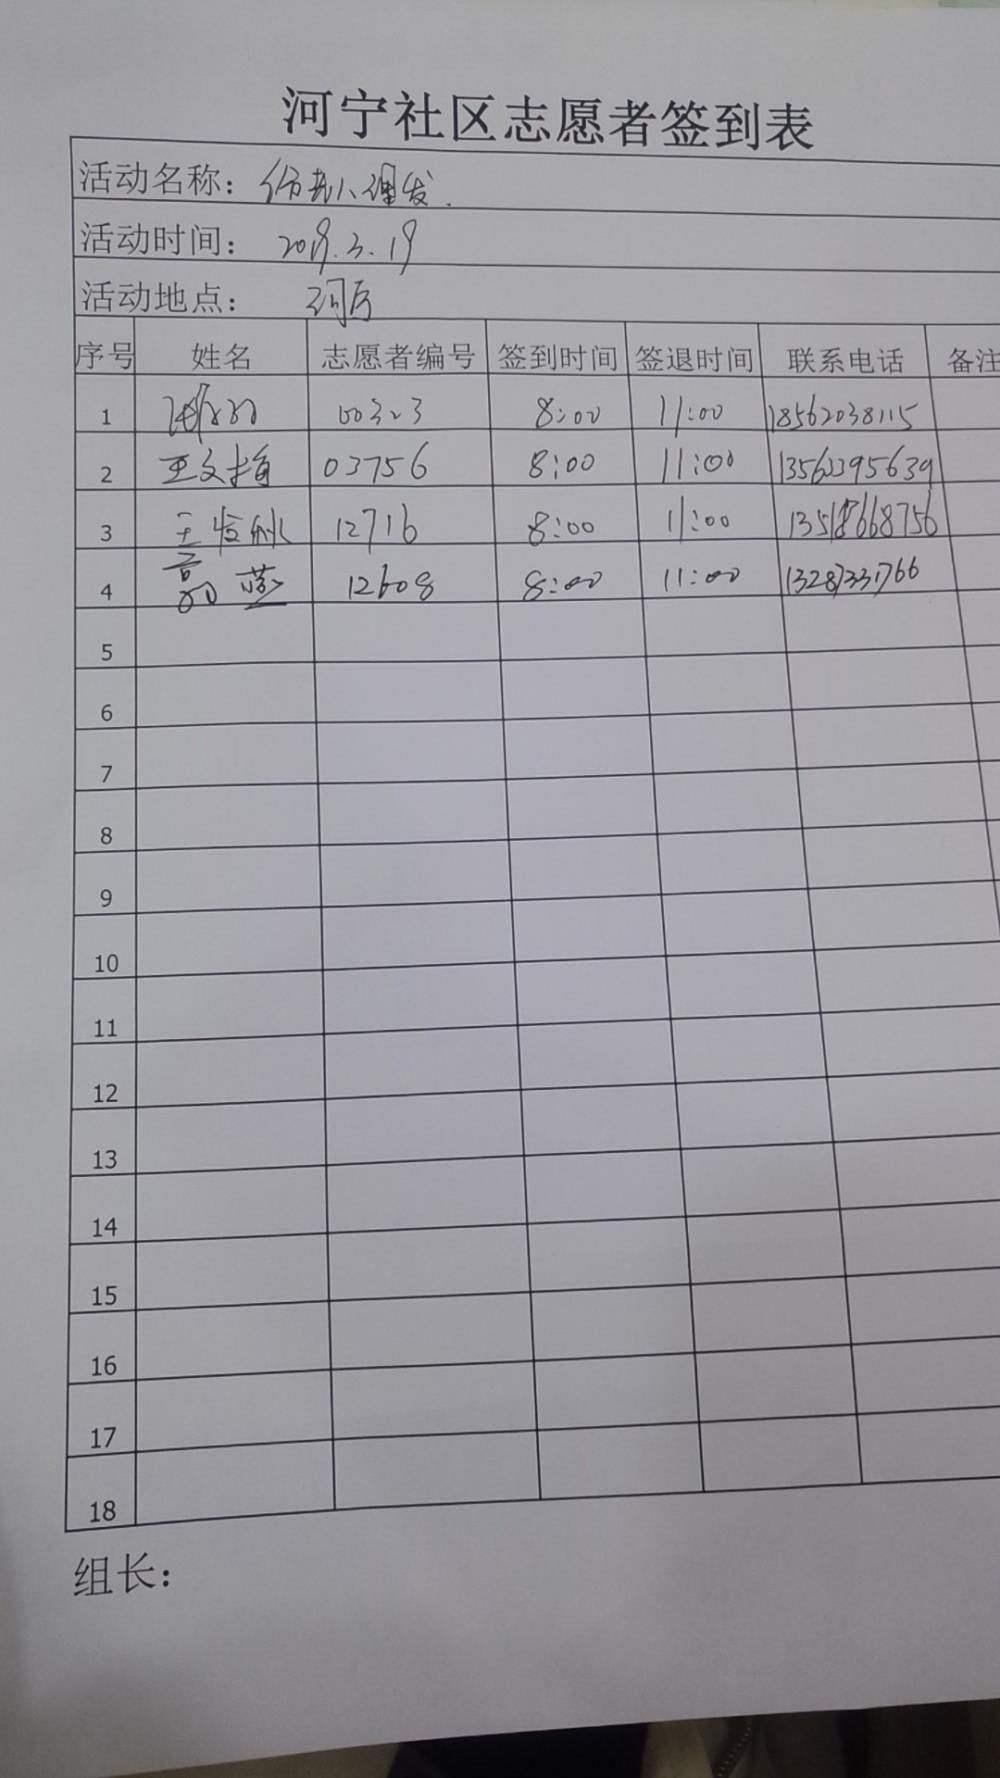 河宁社区志愿者签到表
活动名称：给老人理发.
活动时间：2019.3.19
活动地点：
序号 姓名 志愿者编号 签到时间 签退时间 联系电话 备注
1 00323 8:00 11:00 18562038115
2 王文 03756 8:00 11:00 13562395639
3 王 12716 8:00 11:00 13518668756
4 高 12608 8:00 11:00 13287331766
5
6
7
8
9
10
11
12
13
14
15
16
17
18
组长：